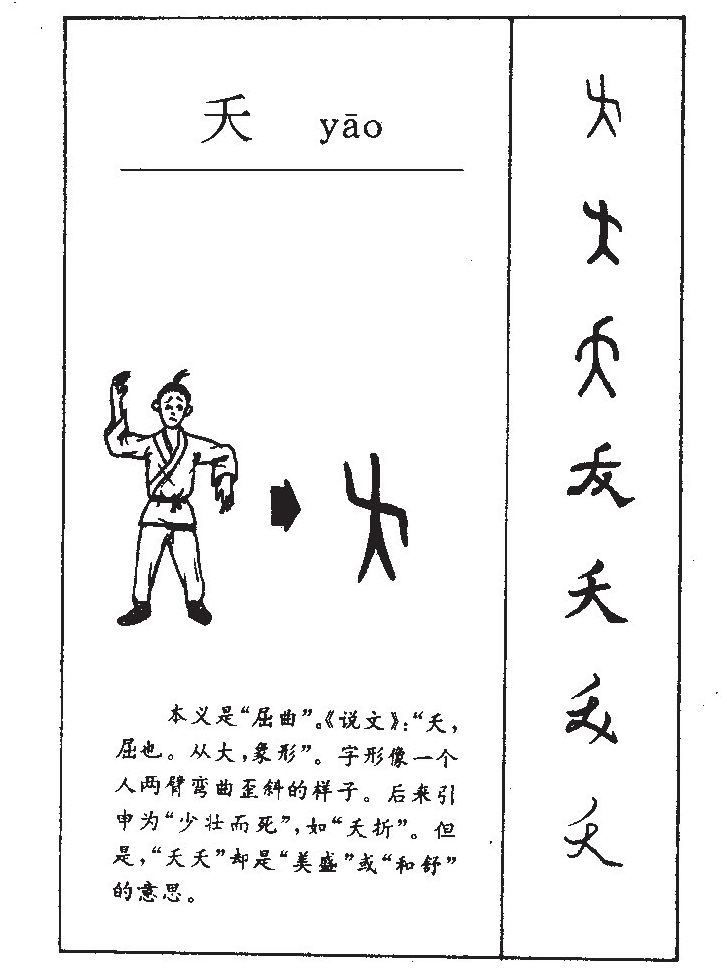 夭 yāo
本义是“屈曲”。《说文》：“夭，
屈也。从大，象形”。字形像一个
人两臂弯曲歪斜的样子。后来引
申为“少壮而死”，如“夭折”。但
是，“夭夭”却是“美盛”或“和舒”
的意思。